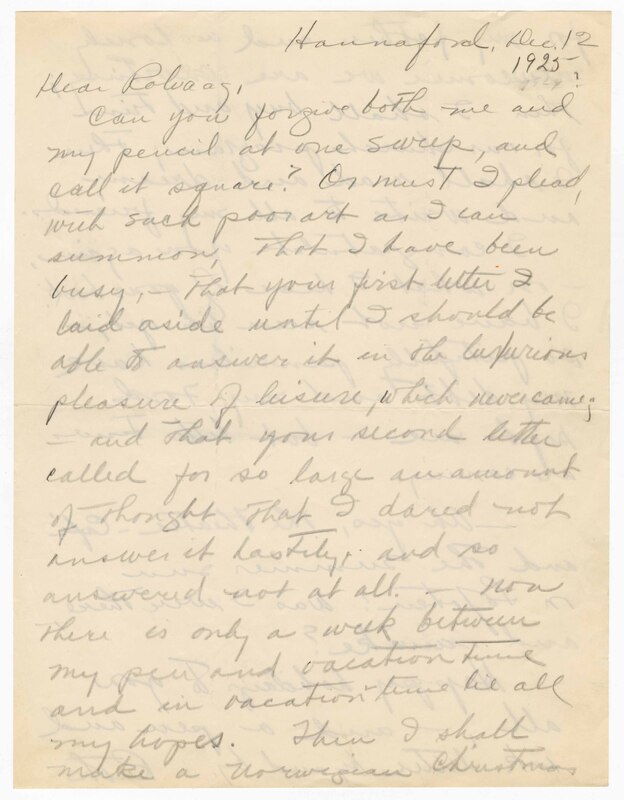 Hannaford, Dec. 12
1925?
Dear Rolvaag,
Can you forgive both me and
my pencil at one sweep, and
call it square? Or must I plead,
with such poor art as I can
summon, that I have been
busy, – that your first letter I
laid aside until I should be
able to answer it in the luxurious
pleasure of leisure, which never came;
– and that your second letter
called for so large an amount
of thought that I dared not
answer it hastily, and so
answered not at all. – Now
there is only a week between
my pen and vacation time
and in vacation-time lie all
my hopes. Then I shall
make a Norwegian Christmas